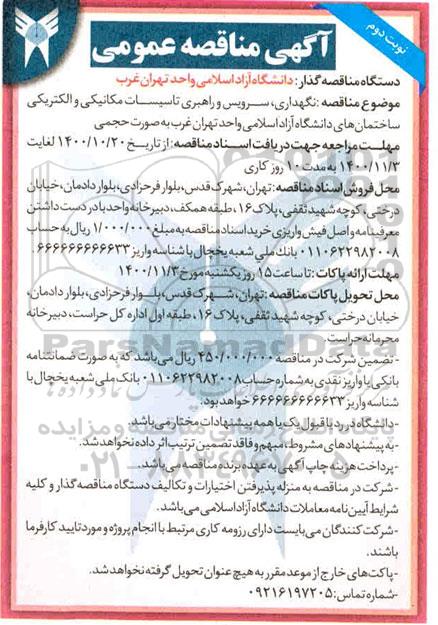 نوبت دوم
آگهی مناقصه عمومی
دستگاه مناقصه گذار: دانشگاه آزاد اسلامی واحد تهران غرب
موضوع مناقصه: نگهداری، سرویس و راهبری تاسیسات مکانیکی و الکتریکی
ساختمان های دانشگاه آزاد اسلامی واحد تهران غرب به صورت حجمی
مهلت مراجعه جهت دریافت اسناد مناقصه: از تاریخ ۱۴۰۰/۱۰/۲۰ لغایت
۱۴۰۰/۱۱/۳ به مدت ۱۰ روز کاری
محل فروش اسناد مناقصه: تهران، شهرک قدس، بلوار فرحزادی، بلوار دادمان، خیابان
درختی، کوچه شهید ثقفی، پلاک ۱۶، طبقه همکف، دبیرخانه واحد با در دست داشتن
معرفینامه و اصل فیش واریزی خرید اسناد مناقصه به مبلغ ۱/۰۰۰/۰۰۰ ریال به حساب
۰۱۱۰۶۲۲۹۸۲۰۰۸ بانک ملی شعبه یخچال با شناسه واریز ۶۶۶۶۶۶۶۶۶۶۶۶۳۳
مهلت ارائه پاکات: تا ساعت ۱۵ روز یکشنبه مورخ ۱۴۰۰/۱۱/۳
محل تحویل پاکات مناقصه: تهران، شهرک قدس، بلوار فرحزادی، بلوار دادمان،
خیابان درختی، کوچه شهید ثقفی، پلاک ۱۶، طبقه اول اداره کل حراست، دبیرخانه
محرمانه حراست.
-تضمین شرکت در مناقصه ۴۵۰/۰۰۰/۰۰۰ ریال می باشد که به صورت ضمانتنامه
بانکی یا واریز نقدی به شماره حساب ۰۱۱۰۶۲۲۹۸۲۰۰۸ بانک ملی شعبه یخچال با
شناسه واریز ۶۶۶۶۶۶۶۶۶۶۶۶۳۳ خواهد بود.
-دانشگاه در رد یا قبول یک یا همه پیشنهادات مختار می باشد.
-به پیشنهادهای مشروط، مبهم و فاقد تضمین ترتیب اثر داده نخواهد شد.
-پرداخت هزینه چاپ آگهی به عهده برنده مناقصه می باشد.
-شرکت در مناقصه به منزله پذیرفتن اختیارات و تکالیف دستگاه مناقصه گذار و کلیه
شرایط آیین نامه معاملات دانشگاه آزاد اسلامی می باشد.
-شرکت کنندگان می بایست دارای رزومه کاری مرتبط با انجام پروژه و مورد تایید کارفرما
باشند.
-پاکت های خارج از موعد مقرر به هیچ عنوان تحویل گرفته نخواهد شد.
-شماره تماس: ۰۹۲۱۶۱۹۷۲۰۵